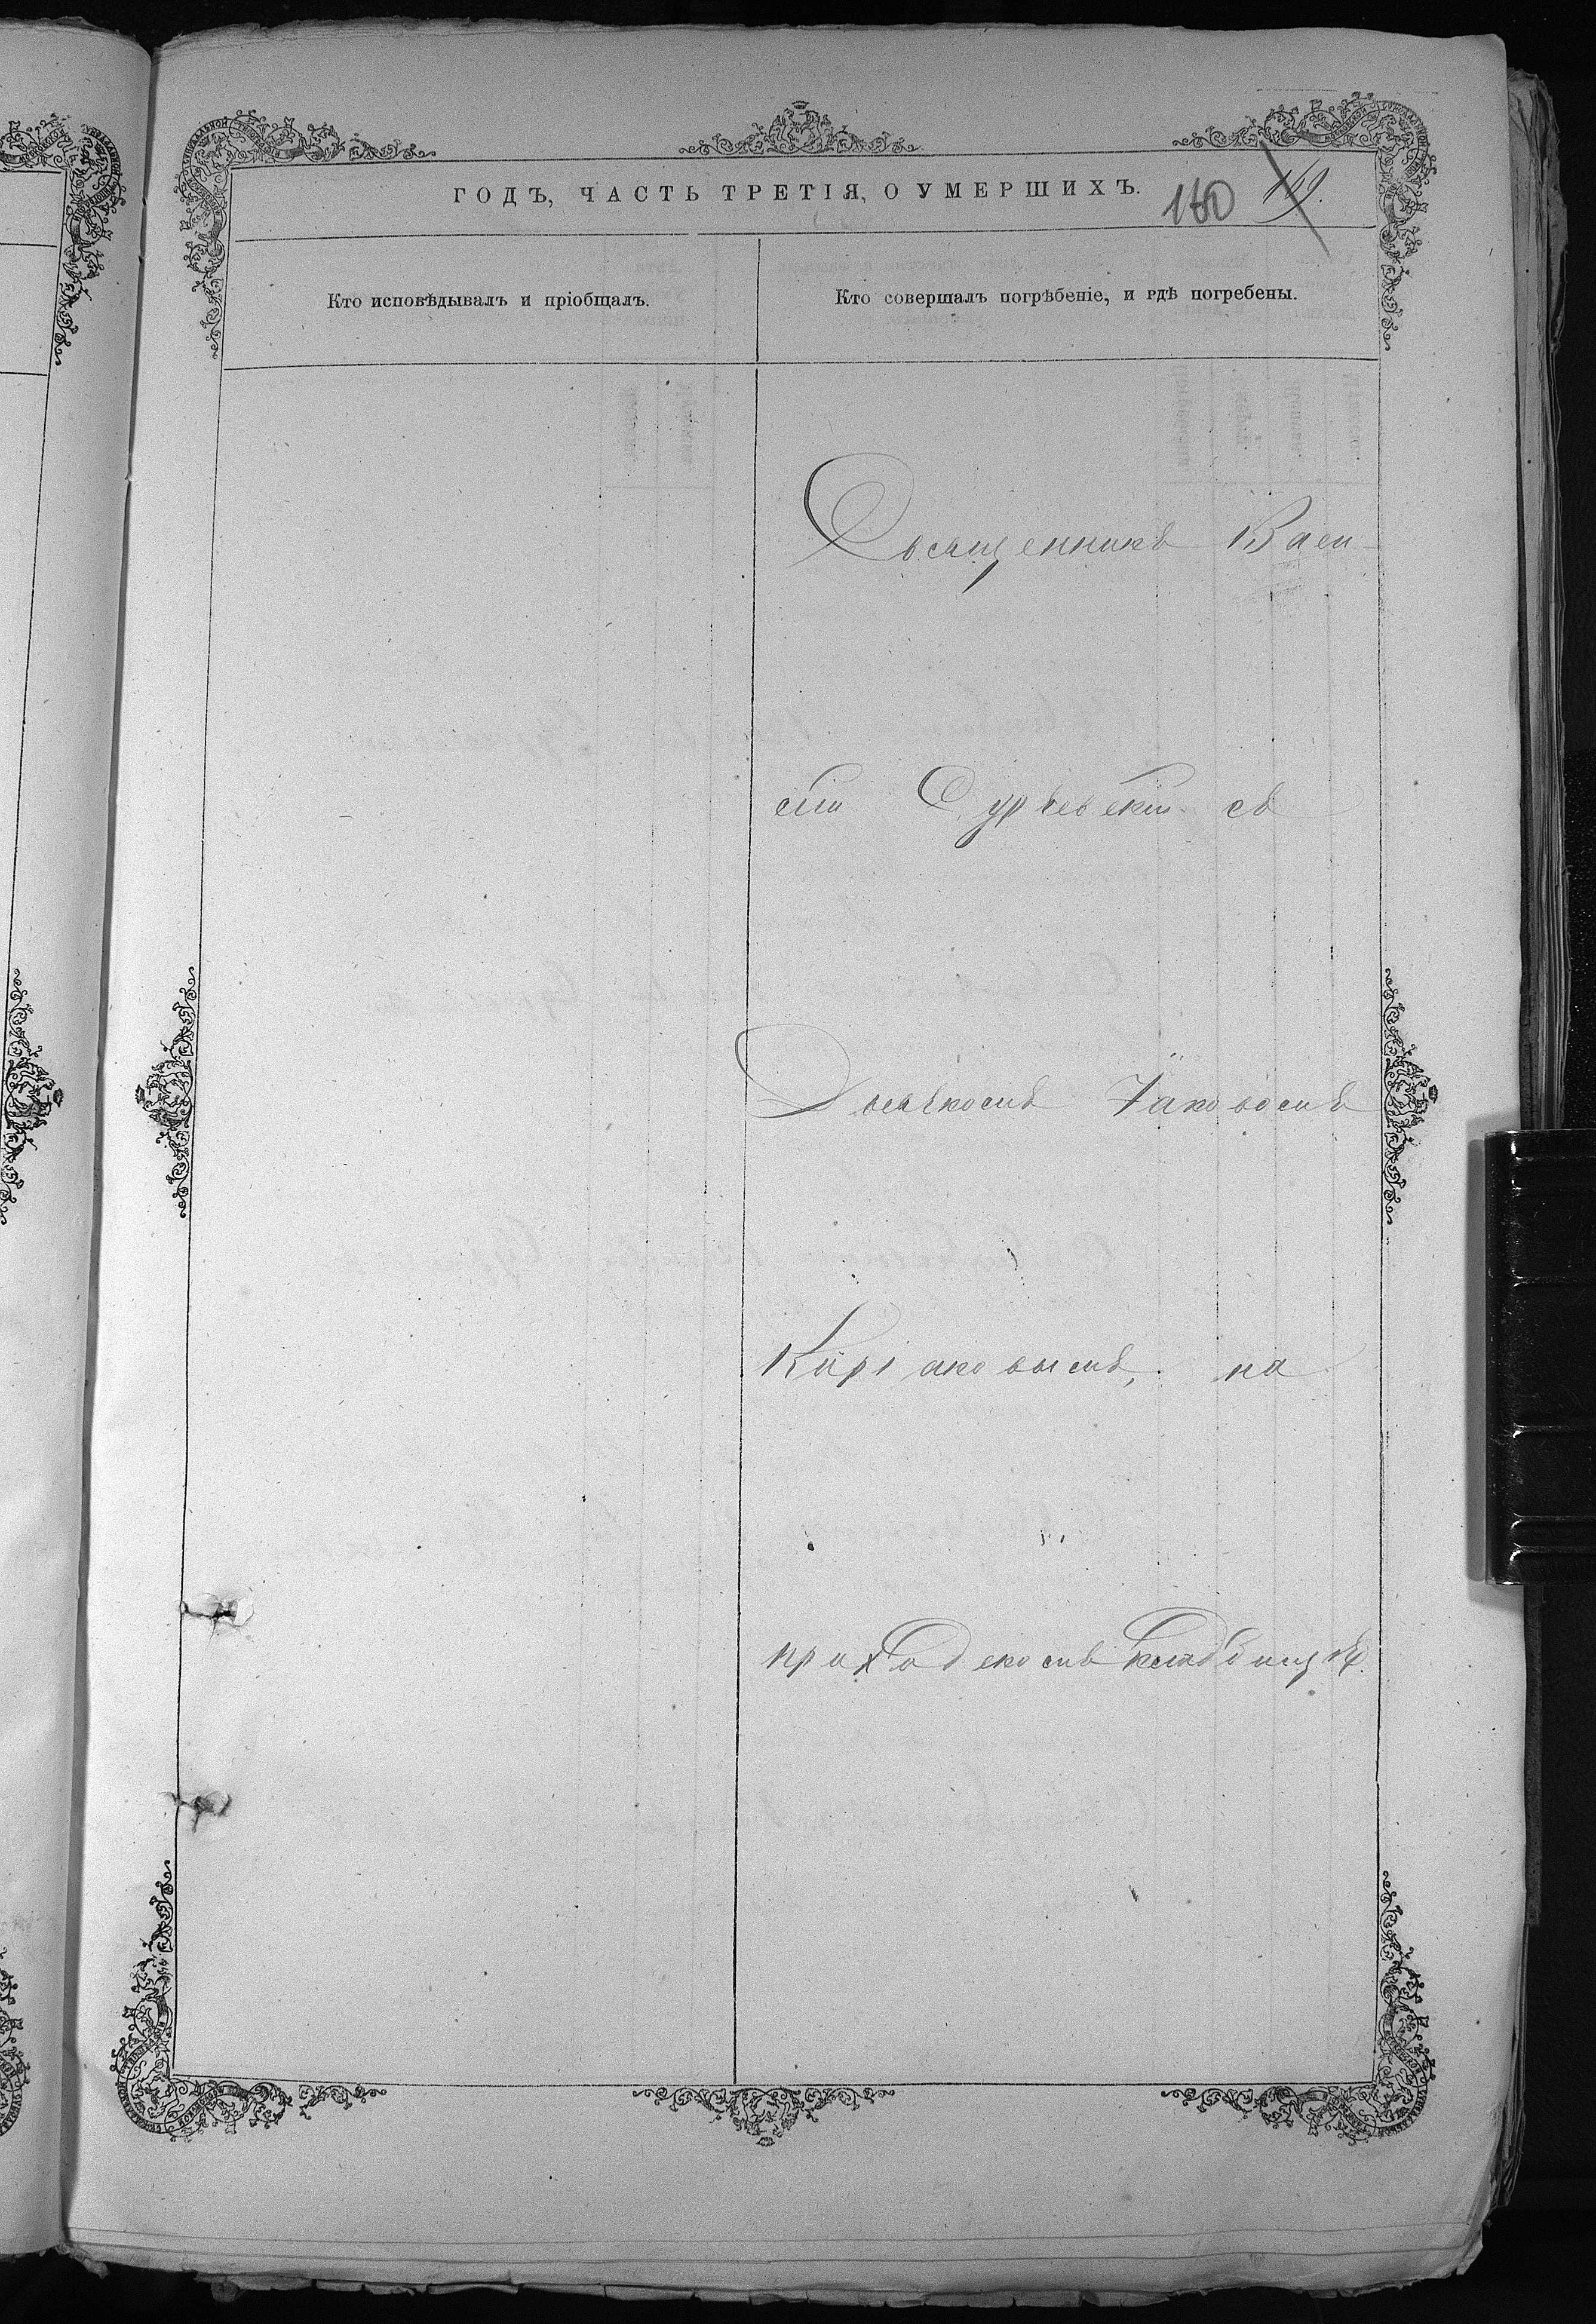 ГОДЪ, ЧАСТЬ ТРЕТІЯ, О УМЕРШИХЪ.
160 149.
Кто исповѣдывалъ и пріобщалъ.
Кто совершалъ погрѣбеніе, и гдѣ погребены.
Священникъ Васи-
лій съ
Дьячкомъ Іаковомъ
Киріаковымъ, на
приходскомъ кладбищѣ.